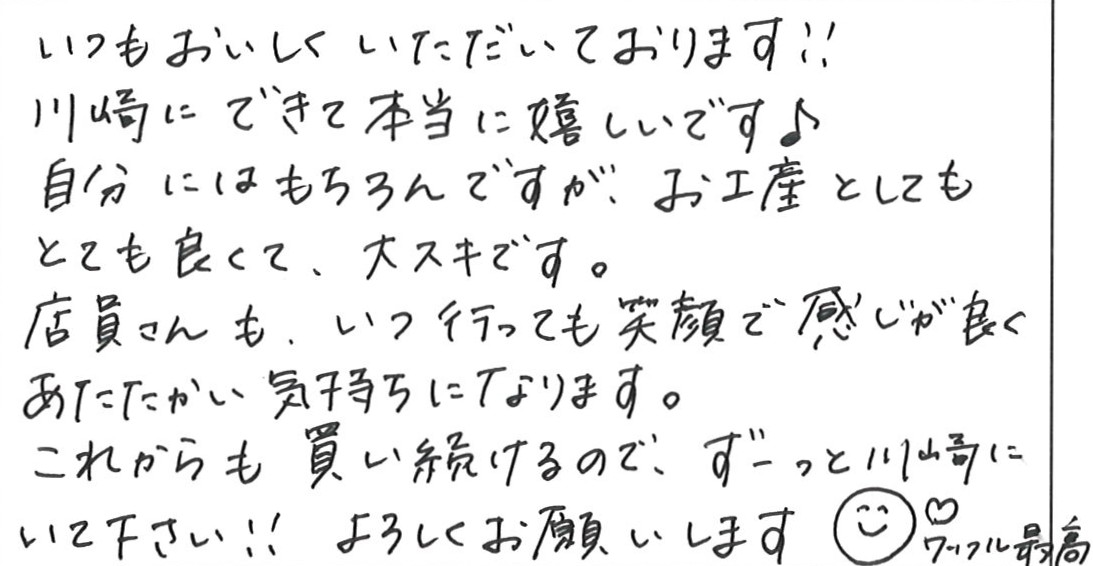 いつもおいしくいただいております!!
川崎にできて本当に嬉しいです♪
自分にはもちろんですが、お土産としても
とても良くて、大スキです。
店員さんも、いつ行っても笑顔で感じが良く
あたたかい気持ちになります。
これからも買い続けるので、ずーっと川崎に
いて下さい!! よろしくお願いします
♡ワッフル最高